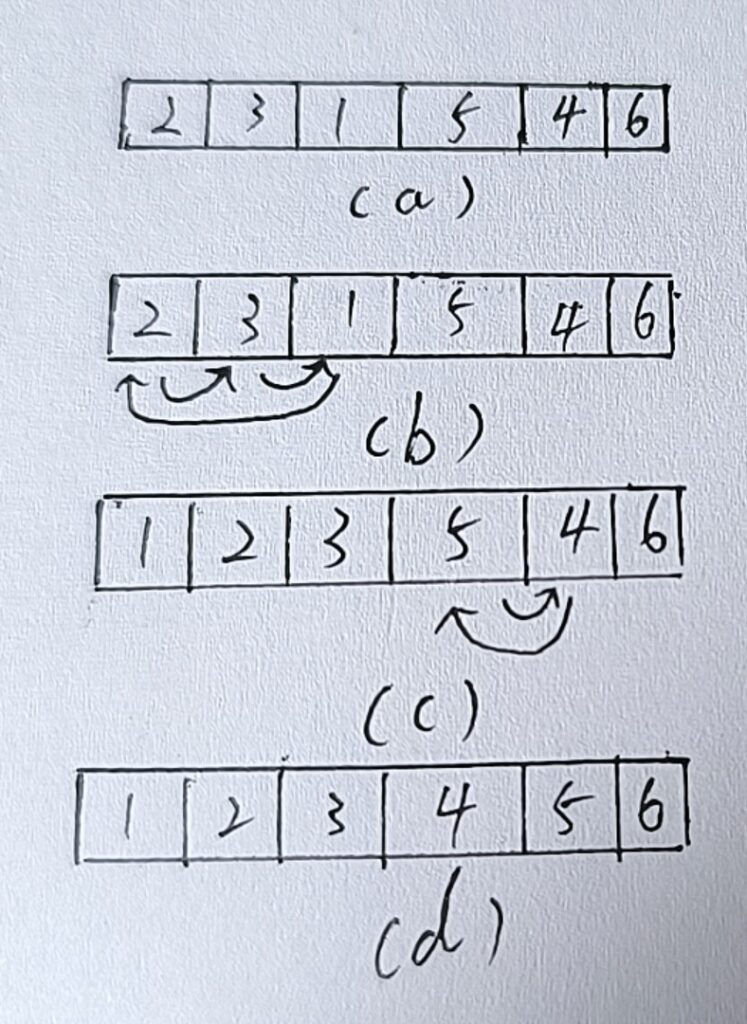 2 3 1 5 4 6
(a)
2 3 1 5 4 6
(b)
1 2 3 5 4 6
(c)
1 2 3 4 5 6
(d)